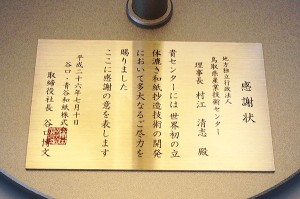 感謝状
地方独立行政法人
鳥取県産業技術センター
理事長 村江 清志 殿
貴センターには世界初の立
体漉き和紙抄造技術の開発
において多大なるご尽力を
賜りました
ここに感謝の意を表します
平成二十六年七月十日
谷口・青谷和紙株式
取締役社長 谷口博文